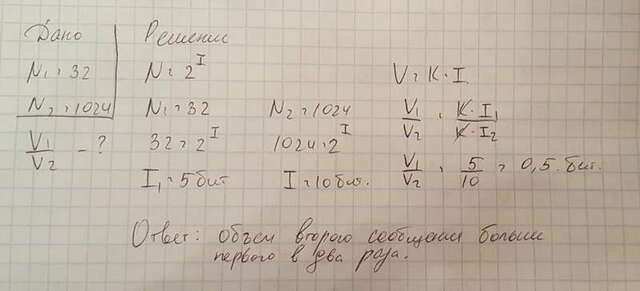 Дано
N₁ = 32
N₂ = 1024
V₁/V₂ - ?
Решение
N = 2^I
N₁ = 32
32 = 2^I
I₁ = 5 бит
N₂ = 1024
1024 = 2^I
I = 10 бит.
V = K · I.
V₁/V₂ = K · I₁/K · I₂
V₁/V₂ = 5/10 = 0,5 бит.
Ответ: объем второго сообщения больше
первого в два раза.